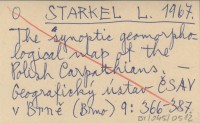 O STARKEL L. 1967.
The synoptic geomorpho-
logical map of the
Polish Carpathians. —
Geografický ústav ČSAV
v Brně (Brno) 9: 366-387.